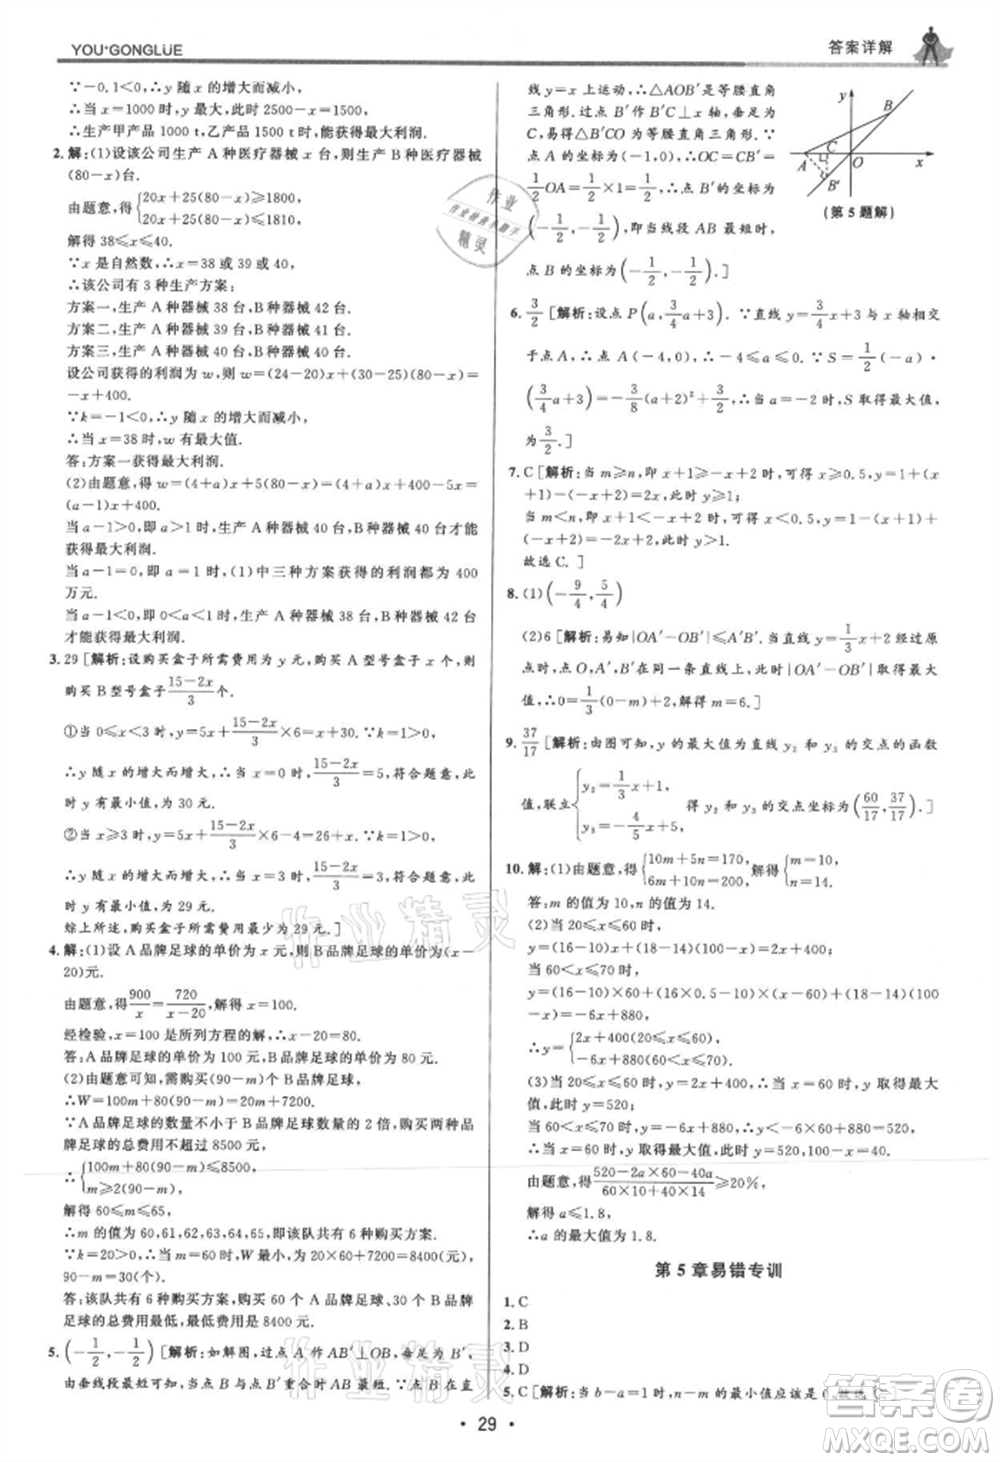 YOU+GONGLUE
答案详解
∵-0.1<0,∴y随 x 的增大而减小,
∴当 x=1000 时,y 最大,此时 2500-x=1500,
∴生产甲产品 1000 t,乙产品 1500 t 时,能获得最大利润.
2. 解:(1)设该公司生产 A 种医疗器械 x 台,则生产 B 种医疗器械
(80-x)台.
由题意,得{20x+25(80-x)≥1800,
20x+25(80-x)≤1810,
解得 38≤x≤40.
∵x 是自然数,∴x=38 或 39 或 40.
∴该公司有 3 种生产方案:
方案一,生产 A 种器械 38 台,B 种器械 42 台.
方案二,生产 A 种器械 39 台,B 种器械 41 台.
方案三,生产 A 种器械 40 台,B 种器械 40 台.
设公司获得的利润为 w,则 w=(24-20)x+(30-25)(80-x)=
-x+400.
∵k=-1<0,∴y 随 x 的增大而减小,
∴当 x=38 时,w 有最大值.
答:方案一获得最大利润.
(2)由题意,得 w=(4+a)x+(80-x)×5=(4+a)x-5x+400=
(a-1)x+400.
当 a-1>0,即 a>1 时,生产 A 种器械 40 台,B 种器械 40 台才能
获得最大利润.
当 a-1=0,即 a=1 时,(1)中三种方案获得的利润都为 400
万元.
当 a-1<0,即 0<a<1 时,生产 A 种器械 38 台,B 种器械 42 台
才能获得最大利润.
3. 29 [解析:设购买盒子所需费用为 y 元.购买 A 型号盒子 x 个,则
购买 B 型号盒子 (15-2x)/3 个.
①当 0≤x<3 时,y=5x+(15-2x)/3×6=x+30.∵k=1>0,
∴y 随 x 的增大而增大,∴当 x=0 时,(15-2x)/3=5,符合题意,此
时 y 有最小值,为 30 元.
②当 x≥3 时,y=5x+(15-2x)/3×6-4=26+x.∵k=1>0,
∴y 随 x 的增大而增大,∴当 x=3 时,(15-2x)/3=3,符合题意,此
时 y 有最小值,为 29 元.
综上所述,购买盒子所需费用最少为 29 元.]
4. 解:(1)设 A 品牌足球的单价为 x 元,则 B 品牌足球的单价为(x-
20)元.
由题意,得 900/x=720/(x-20),解得 x=100.
经检验,x=100 是所列方程的解,∴x-20=80.
答:A 品牌足球的单价为 100 元,B 品牌足球的单价为 80 元.
(2)由题意可知,需购买(90-m)个 B 品牌足球,
∴W=100m+80(90-m)=20m+7200.
∵A 品牌足球的数量不小于 B 品牌足球数量的 2 倍,购买两种品牌
足球的总费用不超过 8500 元,
∴{100m+80(90-m)≤8500,
m≥2(90-m),
解得 60≤m≤65,
∴m 的值为 60,61,62,63,64,65,即该队共有 6 种购买方案.
∵k=20>0,∴当 m=60 时,W 最小,m=60 时,W=20×60+7200=8400(元),此时
90-m=30.
答:该队共有 6 种购买方案,购买 60 个 A 品牌足球、30 个 B 品牌
足球的总费用最低,最低费用是 8400 元.
5. (-1/2,-1/2) [解析:如解图,过点 A 作 AB′⊥OB,垂足为点 B′,
由垂线段最短可知,当点 B 与点 B′重合时 AB 最短.∵点 B 在直
线 y=x 上运动,∴△AOB′是等腰直角
三角形.过点 B′作 B′C⊥x 轴,垂足为点
C,易得△B′CO 为等腰直角三角形.∵
点 A 的坐标为(-1,0),∴OC=CB′=
1/2 OA=1/2×1=1/2,∴点 B′ 的坐标为
(-1/2,-1/2),即当线段 AB 最短时,
点 B 的坐标为(-1/2,-1/2).]
y
B
C
A
O
x
B′
(第 5 题解)
6. 3/2 [解析:设点 P(a,3/4a+3).∵直线 y=3/4x+3 与 x 轴相交
于点 A,∴点 A(-4,0),∴-4≤a≤0.∵S=1/2(-a)·
(3/4a+3)=-3/8(a+2)²+3/2,∴当 a=-2 时,S 取得最大值,
为 3/2.]
7. C [解析:当 m≥n,即 x+1≥-x+2 时,可得 x≥0.5,y=1+(x
+1)-(-x+2)=2x,则当 x=0.5 时,y 取得最小值,最小值为 1;
当 m<n,即 x+1<-x+2 时,可得 x<0.5,y=1-(x+1)+
(-x+2)=-2x+2,则 y>1.
故选 C.]
8. (1)(-9/4,5/4)
(2)6 [解析:易知|OA′-OB′|≤A′B′.当直线 y=1/3x+2 经过原
点时,点 O、A′、B′在同一条直线上,此时|OA′-OB′|取得最大
值,∴0=1/3(0-m)+2,解得 m=6.]
9. 37/17 [解析:由图可知,y 的最大值为直线 y₂ 和 y₃ 的交点的函数
值,联立{y₂=1/3x+1,
y₃=-4/5x+5, 得 y₂ 和 y₃ 的交点坐标为(60/17,37/17).]
10. 解:(1)由题意,得{10m+5n=170,
6m+10n=200, 解得{m=10,
n=14.
答:m 的值为 10,n 的值为 14.
(2)当 20≤x≤60 时,
y=(16-10)x+(18-14)(100-x)=2x+400;
当 60<x≤70 时,
y=(16-10)×60+(16×0.5-10)(x-60)+(18-14)(100
-x)=-6x+880,
∴y={2x+400(20≤x≤60),
-6x+880(60<x≤70).
(3)当 20≤x≤60 时,y=2x+400,则当 x=60 时,y 取得最大
值,为 520;
当 60<x≤70 时,y=-6x+880,∴y<-6×60+880=520.
∴当 x=60 时,y 取得最大值,最大值为 520.
由题意,得 (520-2a×60-40a)/(60×10+40×14)≥20%,
解得 a≤1.8,
∴a 的最大值为 1.8.
第 5 章易错专训
1. C
2. B
3. D
4. D
5. C [解析:当 b-a=1 时,n-m 的最小值应该是 0,
· 29 ·
作业
精灵
作业精灵
作业精灵
答案圈
MXQE.COM